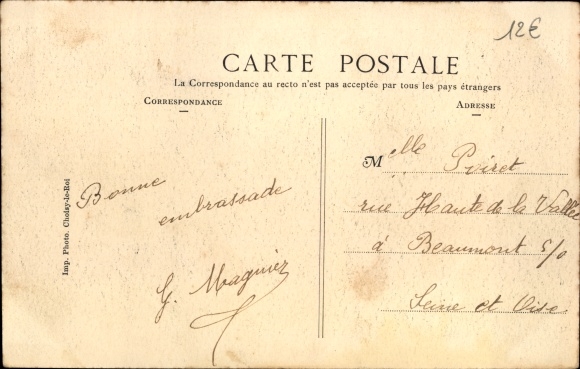 12€
CARTE POSTALE
La Correspondance au recto n'est pas acceptée par tous les pays étrangers
CORRESPONDANCE
ADRESSE
Bonne
embrassade
G. Magniez
Melle Poiret
rue Haute de la Vallée
à Beaumont s/o
Seine et Oise
Imp. Photo. Choisy-le-Roi